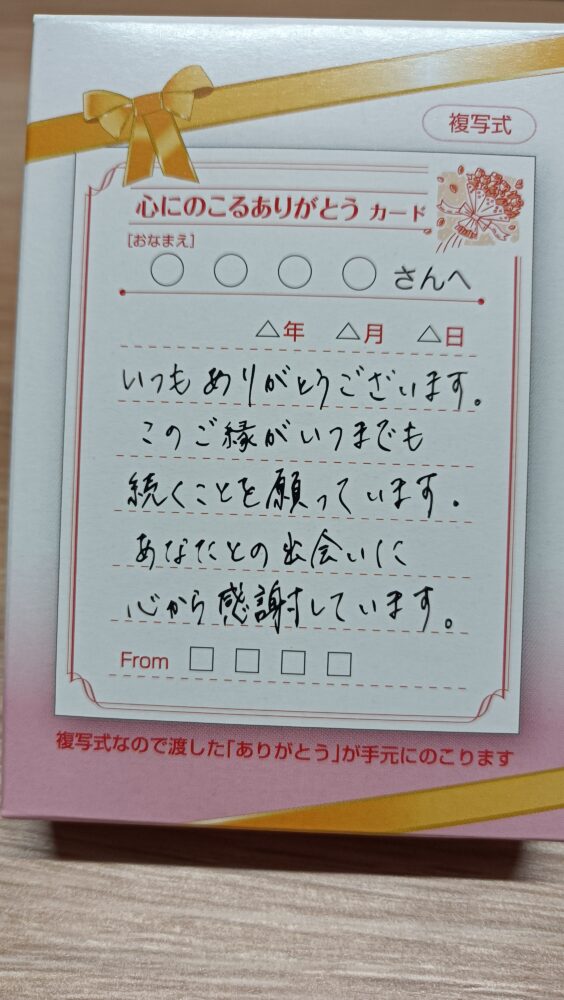 複写式
心にのこるありがとう カード
[おなまえ]
○ ○ ○ ○ さんへ
△年 △月 △日
いつもありがとうございます。
このご縁がいつまでも
続くことを願っています。
あなたとの出会いに
心から感謝しています。
From □ □ □ □
複写式なので渡した「ありがとう」が手元にのこります